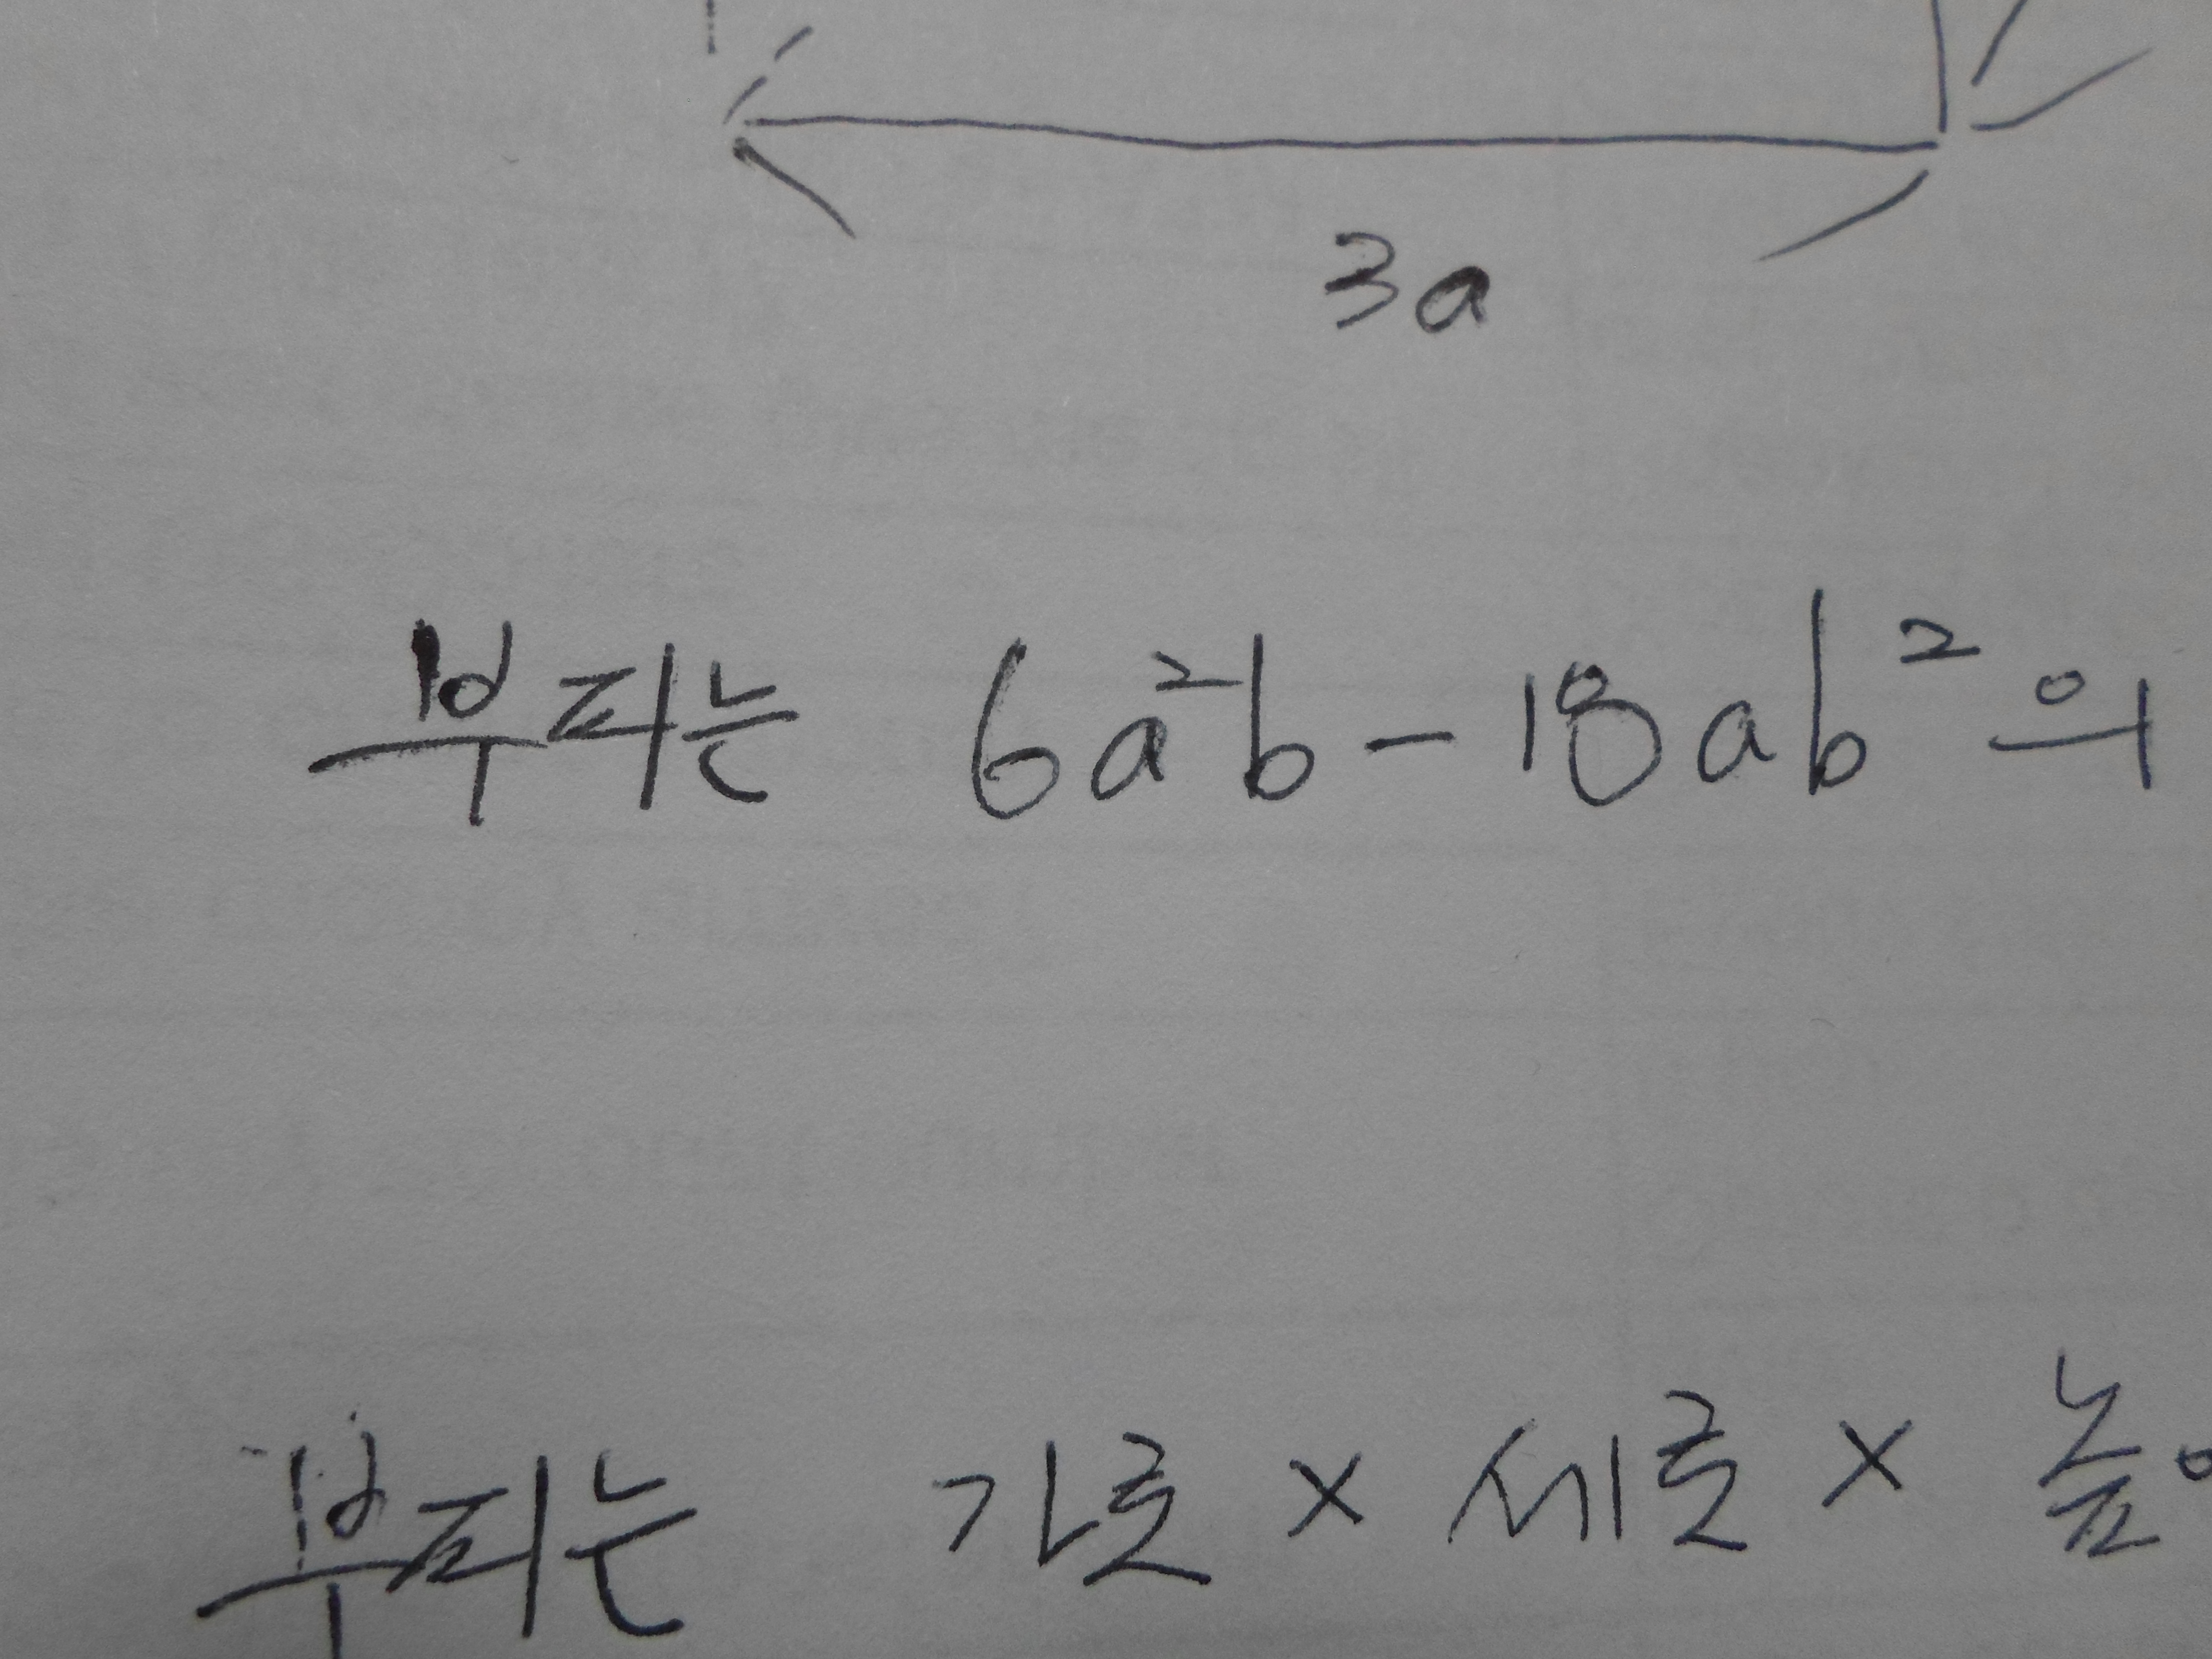 3a
부피는 6a²b - 18ab²의
부피는 가로 × 세로 × 높